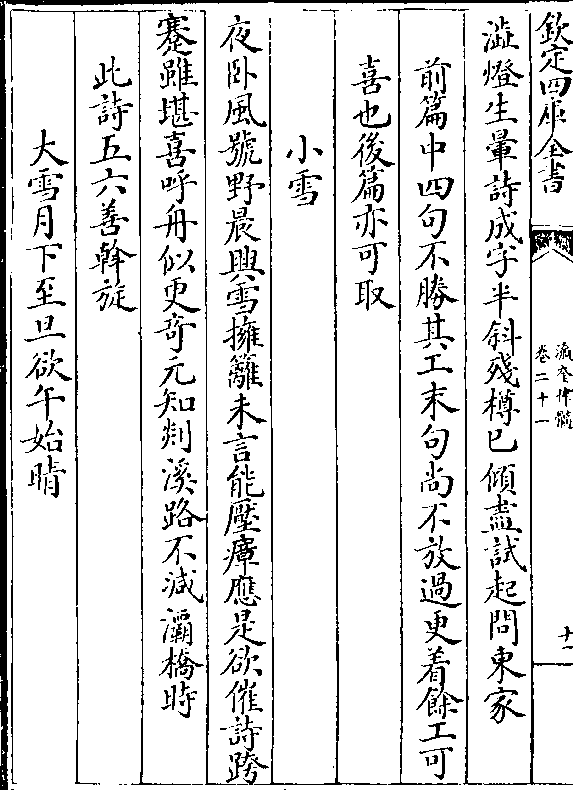 欽定四庫全書
瀛奎律髓
卷二十一
十一
澁燈生暈詩成字半斜殘樽已傾盡試起問東家
前篇中四句不勝其工末句尚不放過更着餘工可
喜也後篇亦可取
小雪
夜卧風號野晨興雪擁籬未言能壓瘴應是欲催詩跨
蹇雖堪喜呼舟似更竒元知剡溪路不減灞橋時
此詩五六善斡旋
大雪月下至旦欲午始晴